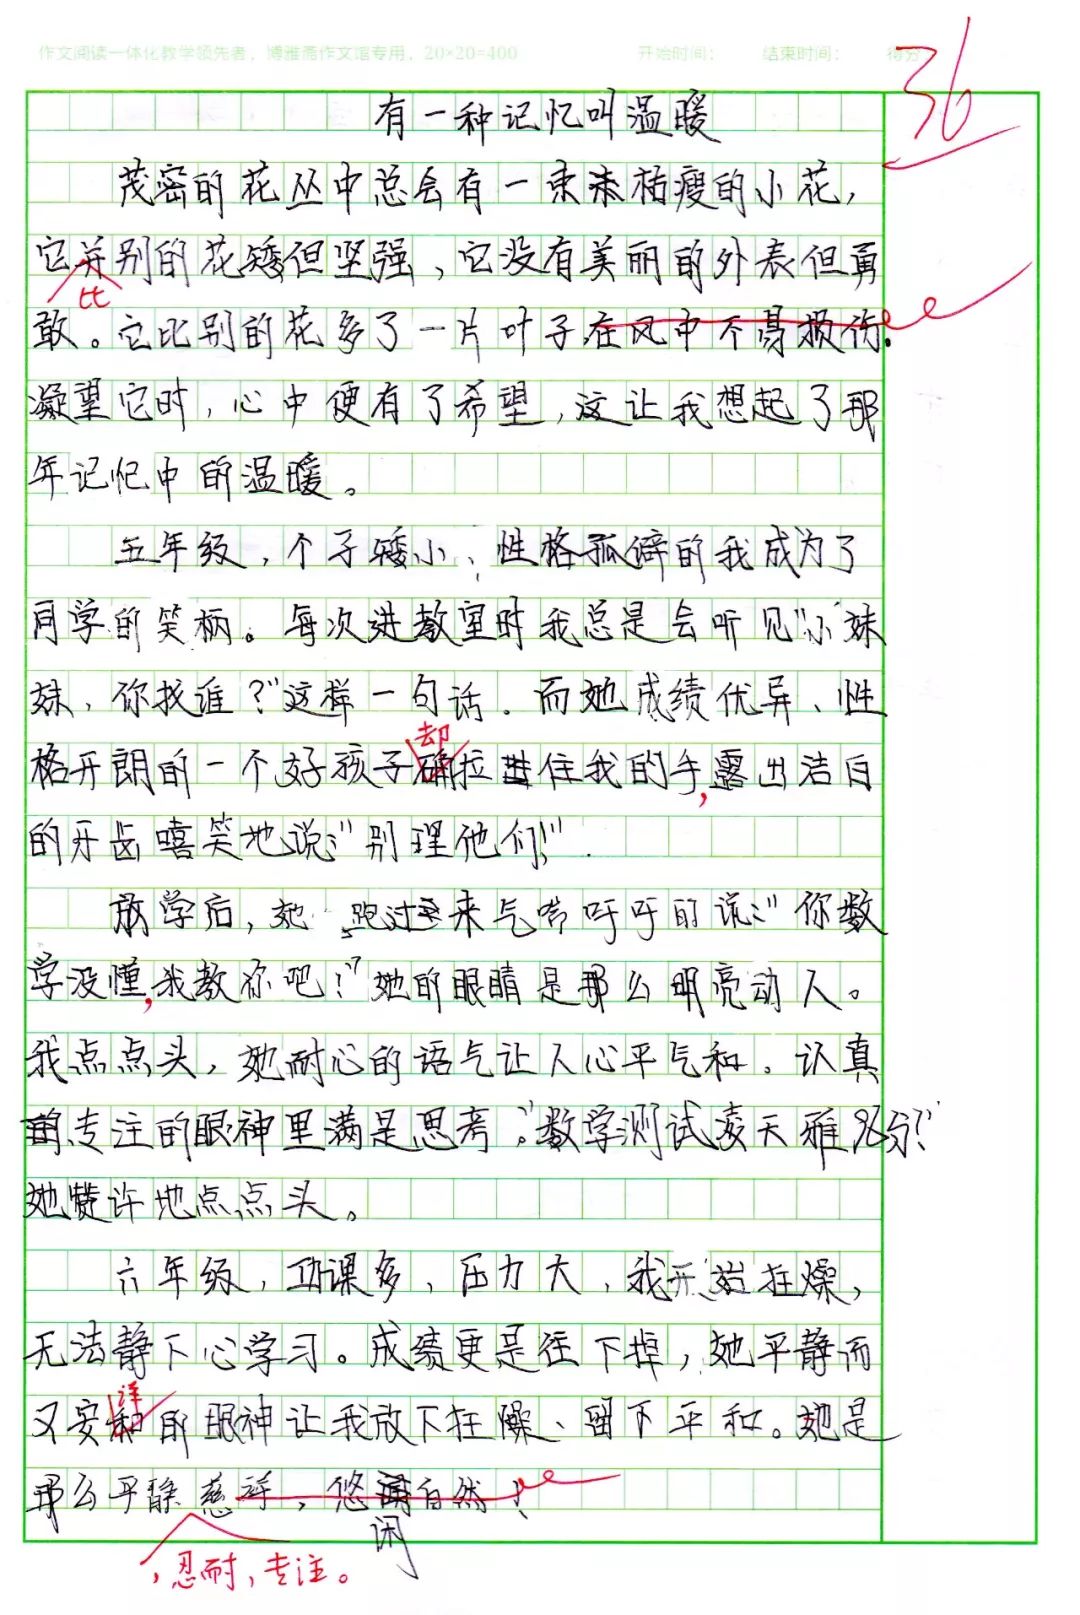 作文阅读一体化教学领先者，博雅斋作文馆专用，20×20=400 开始时间： 结束时间： 得分
36
有一种记忆叫温暖
茂密的花丛中总会有一束枯瘦的小花，
它并别的花矮但坚强，它没有美丽的外表但勇
比
敢。它比别的花多了一片叶子在风中不易损伤.
凝望它时，心中便有了希望，这让我想起了那
年记忆中的温暖。
五年级，个子矮小、性格孤僻的我成为了
同学的笑柄。每次进教室时我总是会听见"小妹
妹，你找谁？"这样一句话。而她成绩优异、性
却
格开朗的一个好孩子确拉住我的手，露出洁白
的牙齿嘻笑地说："别理他们！"
放学后，她跑过来气喘吁吁的说："你数
学没懂，我教你吧！"她的眼睛是那么明亮动人。
我点点头，她耐心的语气让人心平气和。认真
专注的眼神里满是思考。"数学测试凌天雅96分！"
她赞许地点点头。
六年级，功课多，压力大，我开始狂燥，
无法静下心学习。成绩更是往下掉，她平静而
详
又安和的眼神让我放下狂燥、留下平和。她是
那么平静慈祥，悠自然！
闲
，忍耐，专注。